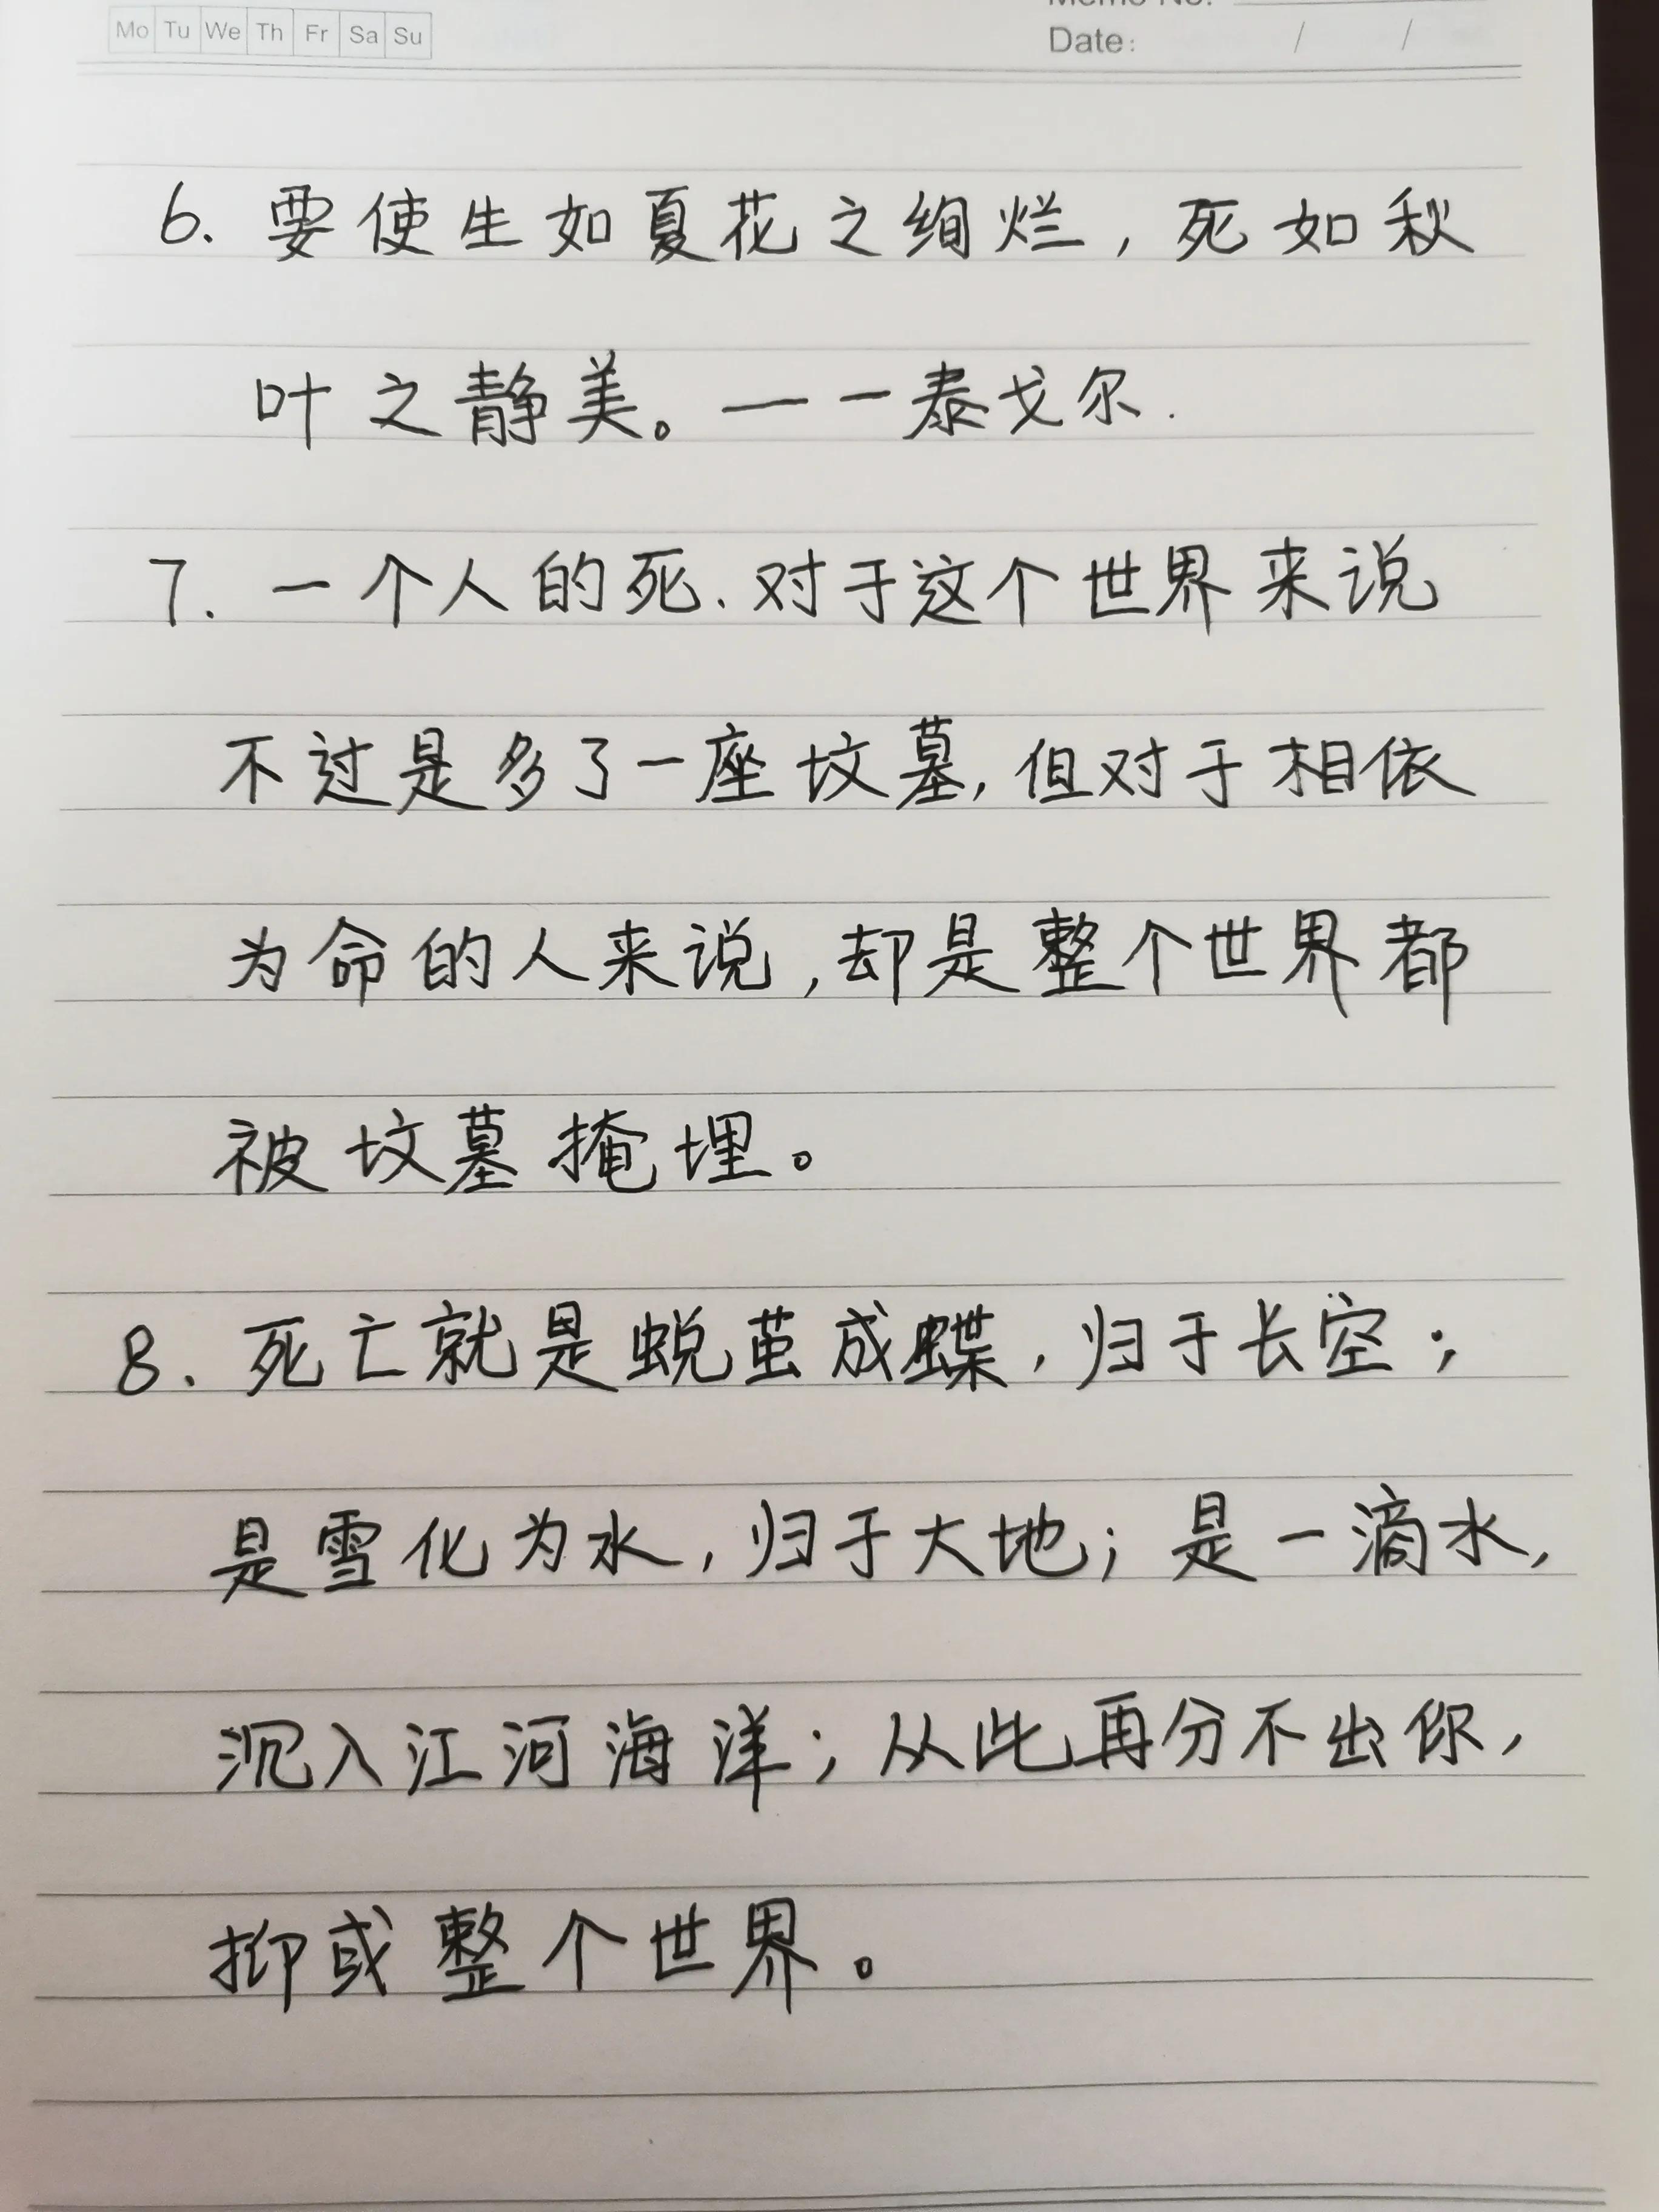 Mo Tu We Th Fr Sa Su
Memo No.
Date: / /
6. 要使生如夏花之绚烂，死如秋
叶之静美。——泰戈尔.
7. 一个人的死、对于这个世界来说
不过是多了一座坟墓，但对于相依
为命的人来说，却是整个世界都
被坟墓掩埋。
8. 死亡就是蜕茧成蝶，归于长空；
是雪化为水，归于大地；是一滴水，
沉入江河海洋；从此再分不出你，
抑或整个世界。